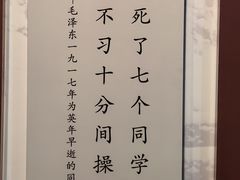 死了七个同学
不习十分间操
毛泽东一九一七年为英年早逝的同